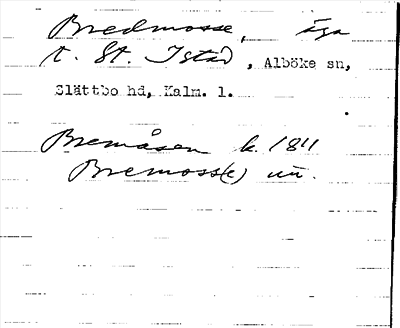 Bredmosse, äga
t. St. Istad, Alböke sn,
Slättbo hd, Kalm. l.
Bremåsen k. 1811
Bremoss(e) un.